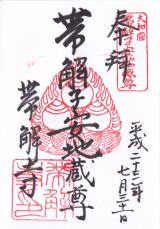 奉拝
帯解子安地蔵尊
帯解寺
平成二十二年
七月三十一日